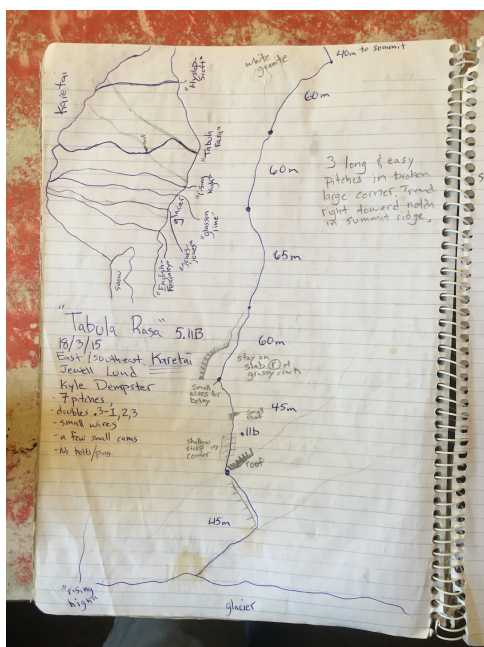 Karetai
Hyslop-
Scott"
"Tabula
Rasa"
"rising
high"
glacier
"glasson
line"
"Jones-
Jones"
"English-
Fearnley"
snow
white
granite
40m to summit
60m
60m
3 long & easy
pitches in broken
large corner, Trend
right toward notch
in summit ridge.
65m
"Tabula Rasa" 5.11B
18/3/15
East/southeast Karetai
Jewell Lund
Kyle Dempster
- 7 pitches,
- doubles .3-1, 2, 3
- small wires
- a few small cams
- No bolts/pins
60m
stay on
slab (r) of
grassy crack
Small
wires for
belay
45m
small
roof
.11b
shallow
steep
corner
roof
45m
"rising
high"
glacier